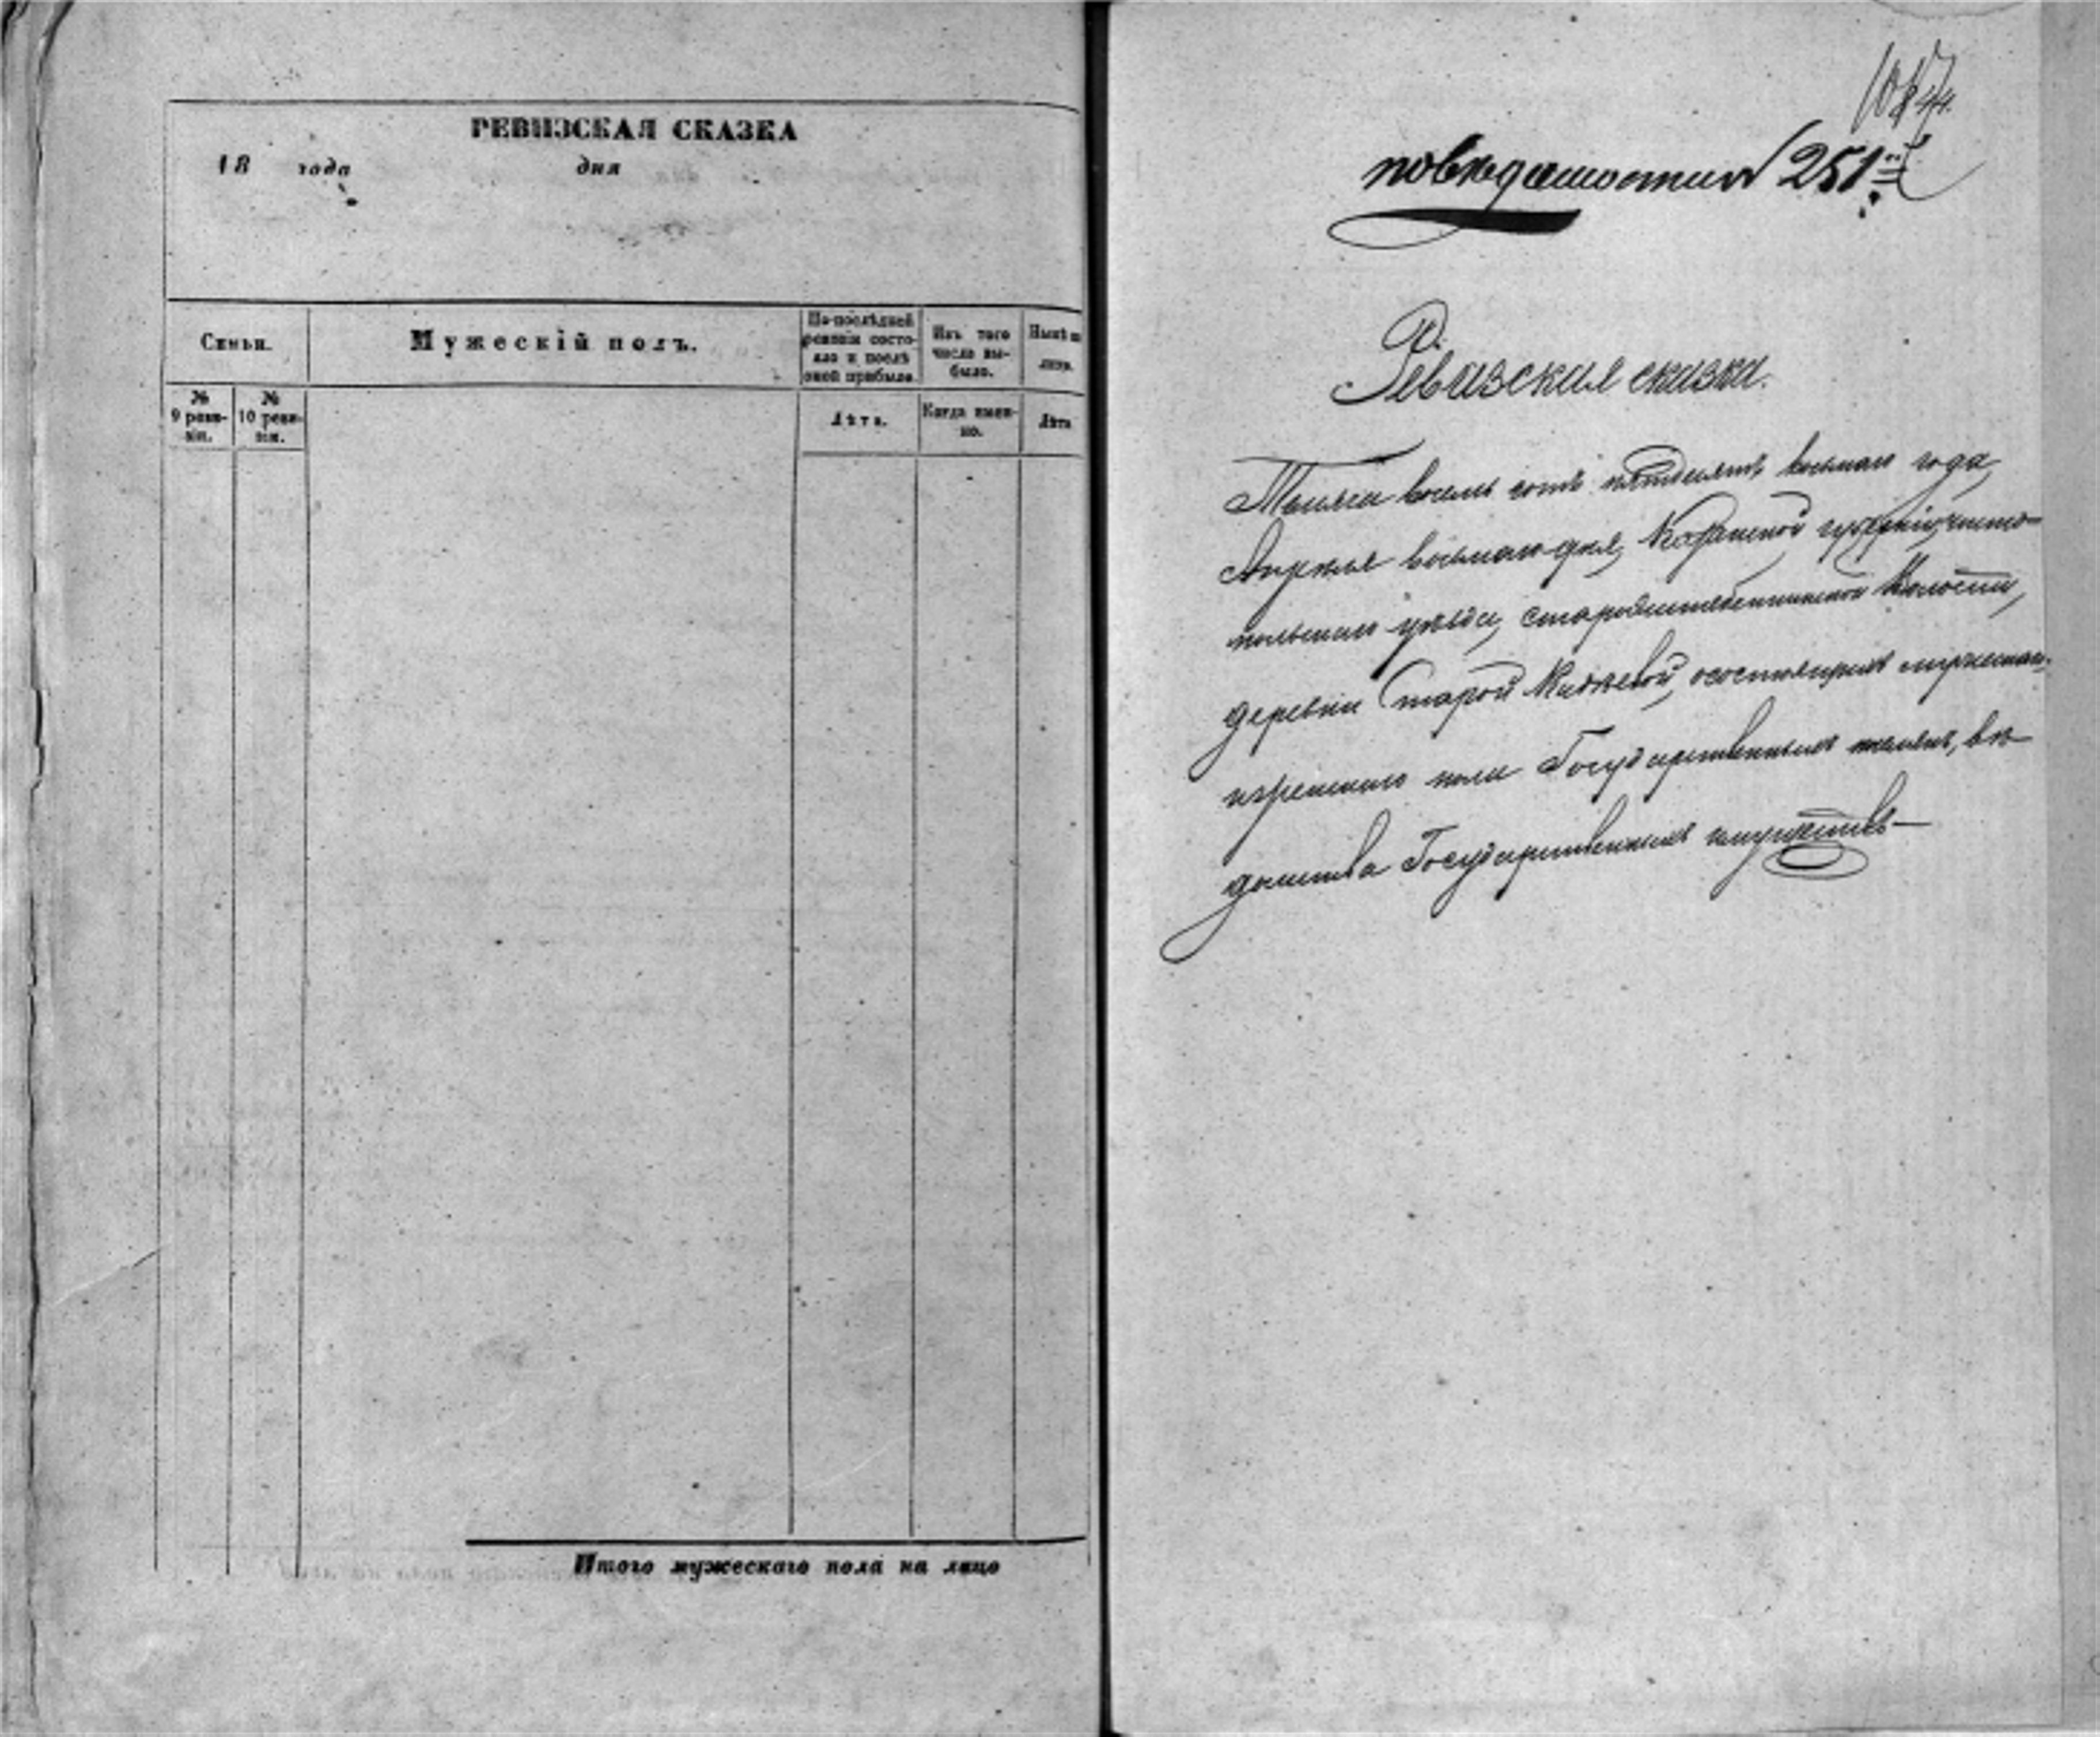 РЕВИЗСКАЯ СКАЗКА
18 года дня
Семьи.
Мужескій полъ.
По послѣдней ревизіи состояло и послѣ оной прибыло.
Изъ того числа выбыло.
Нынѣ на лицо.
№ 9 ревизіи.
№ 10 ревизіи.
Лѣта.
Когда именно.
Лѣта
Итого мужескаго пола на лицо
по вѣдомости 251
Ревизская сказка.
Тысяча восемь сотъ пятдесятъ восьмаго года,
Апреля восьмаго дня, Казанской губерніи, чисто-
польскаго уѣзда, Волости,
деревни Старой о состоящихъ мужескаго
пола Государственныхъ вѣ-
домства Государственныхъ имуществъ